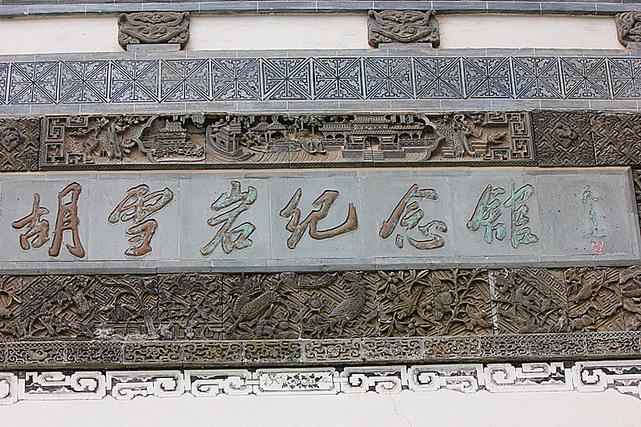 胡雪岩纪念馆